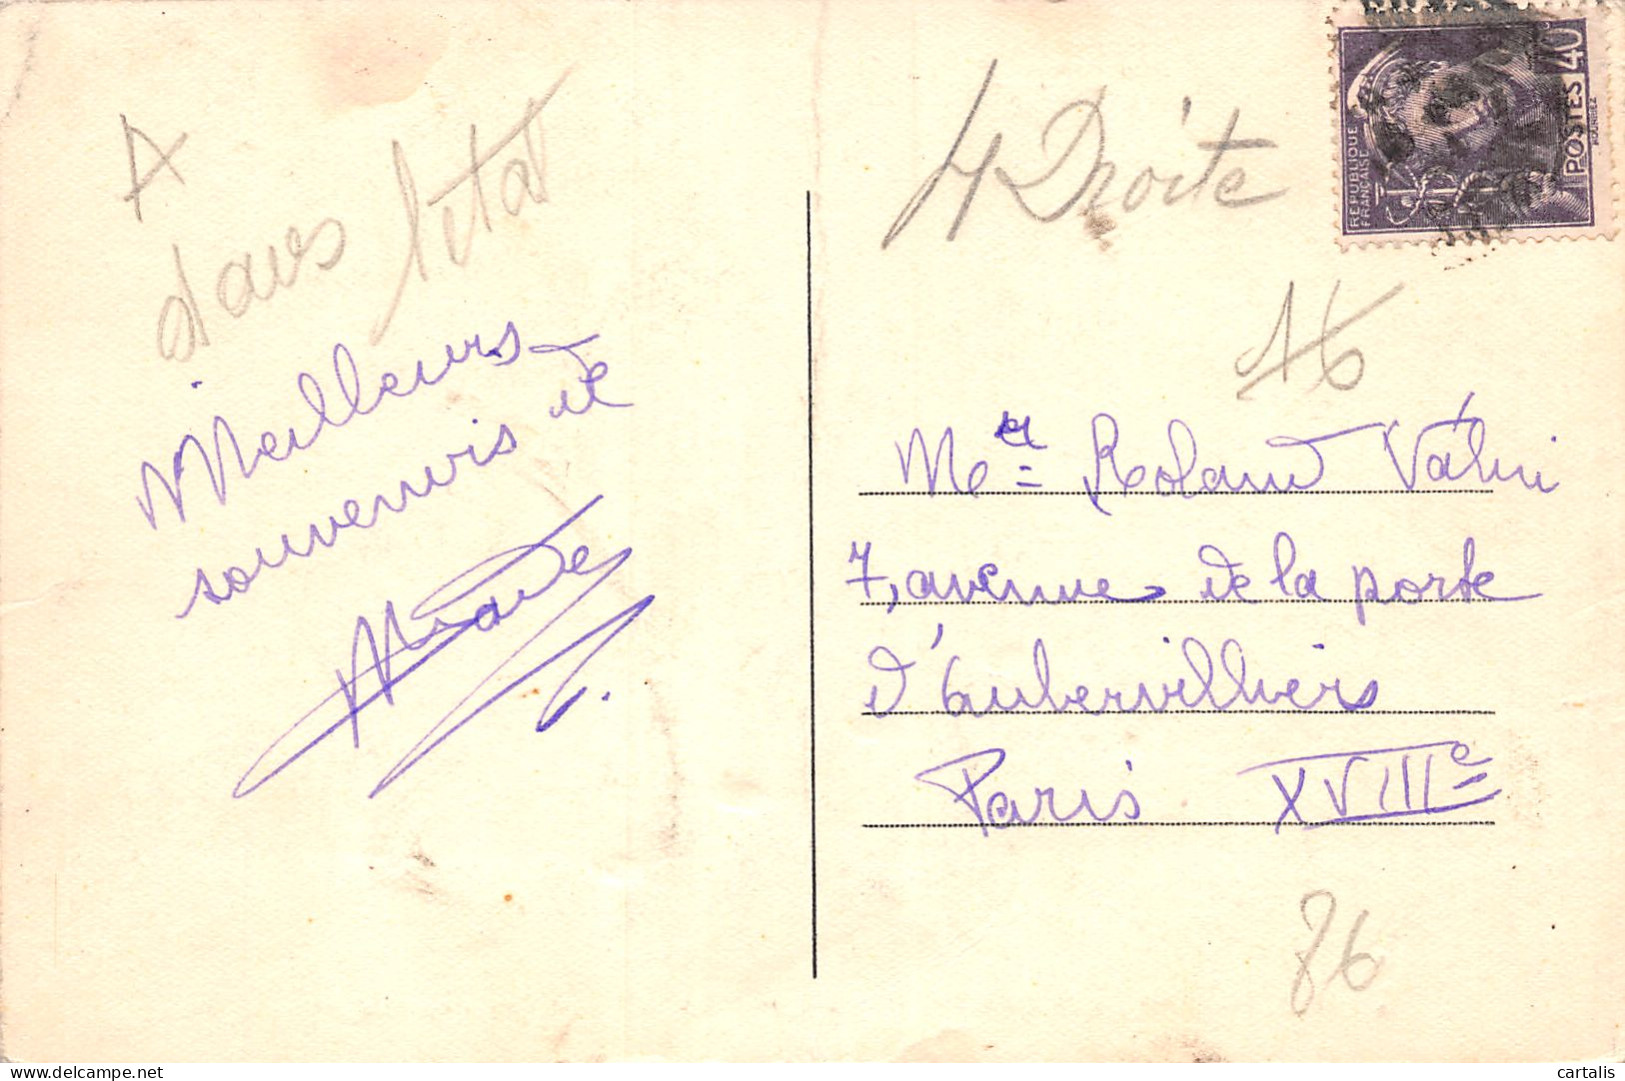 A
dans l'état
Meilleurs
souvenirs de
4 Droite
16
RÉPUBLIQUE
FRANÇAISE
POSTES 40
Roland
7, avenue de la porte
d'Aubervilliers
Paris XVIIIe
86
delcampe.net
cartalis